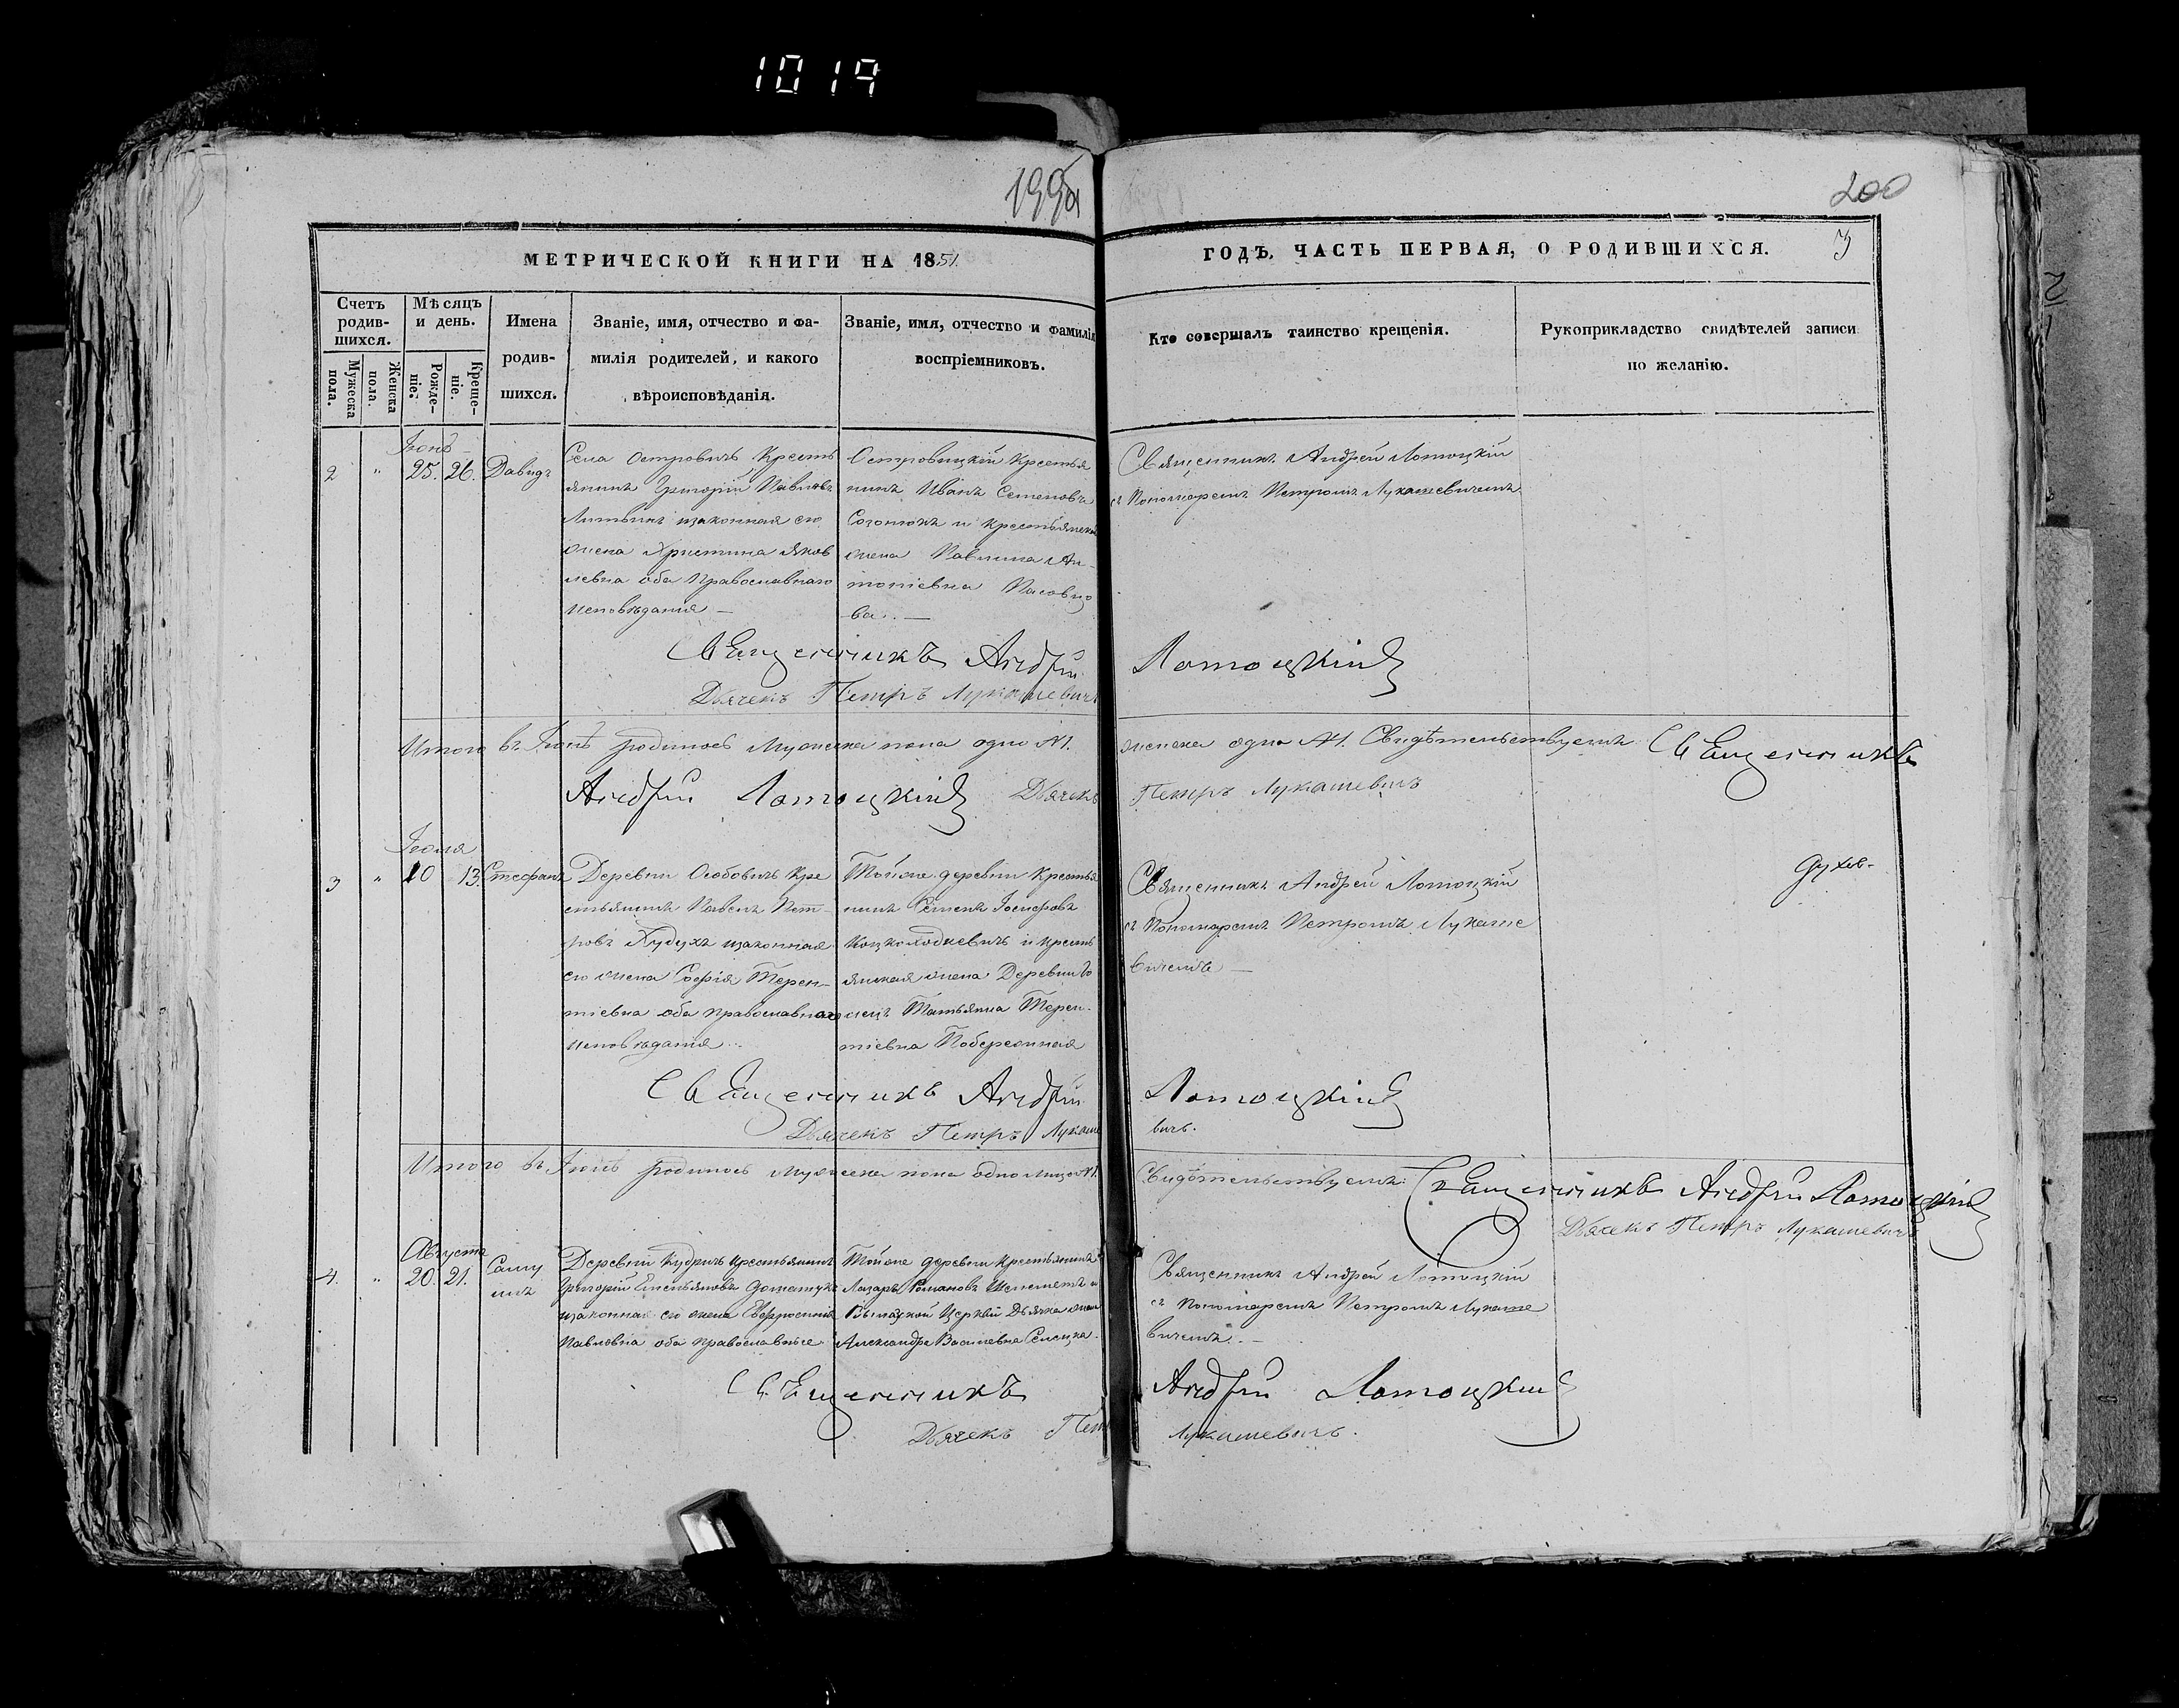 1019
199
200
МЕТРИЧЕСКОЙ КНИГИ НА 1851
ГОДЪ, ЧАСТЬ ПЕРВАЯ, О РОДИВШИХСЯ.
3
Счетъ родив-шихся.
Мужеска пола.
Женска пола.
Мѣсяцъ и день.
Рожде-ніе.
Креще-ніе.
Имена родив-шихся.
Званіе, имя, отчество и фа-милія родителей, и какого вѣроисповѣданія.
Званіе, имя, отчество и фамилія воспріемниковъ.
Кто совершалъ таинство крещенія.
Рукоприкладство свидѣтелей записи по желанію.
2 " 25. 26. Давидъ
Села Островичъ Кресть
янинъ Григорій Павловъ
Литвинъ изаконная его
жена Христина Яков
левна оба Православнаго
исповѣданія —
Островицкій Крестья
нинъ Иванъ Семеновъ
Созонюкъ и крестьянска
жена Павлина Ан-
тоніевна
ва. —
Священникъ Андрей Лотоцкій
съ Пономаремъ Петромъ Лукашевичемъ.
Священникъ Андрей Лотоцкій
Дьячекъ Петръ Лукашевичъ
Итого въ родилось Мужеска пола одно №1. женска одно №1. Свидѣтельствуемъ Священникъ
Андрей Лотоцкій Дьячекъ Петръ Лукашевичъ
Іюля
3 " 10 13. Стефанъ
Деревни Особовичъ Кре
стьянинъ Павелъ Пет-
ровъ Кудухъ изаконная
его жена Софія Терен-
тіевна оба православнаго
исповѣданія
Тойже деревни Крестья
нинъ Семенъ Іосифовъ
и кресть
янская жена Деревни
Татьянна Терен-
тіевна Побережная
Священникъ Андрей Лотоцкій
съ Пономаремъ Петромъ Лукаше
вичемъ —
Священникъ Андрей Лотоцкій
Дьячекъ Петръ Лукашевичъ.
Итого въ Іюлѣ родилось Мужеска пола одно лицо №1. Свидѣтельствуемъ: Священникъ Андрей Лотоцкій
Дьячекъ Петръ Лукашевичъ
Августа
4. " 20. 21. Самуилъ
Деревни Кудричъ крестьянинъ
Григорій Емельяновъ
изаконная его жена Евфросинія
Павловна оба православные
Тойже деревни Крестьянинъ
Лазарь Романовъ Шеметъ и
Церкви Дьячка жена
Александра Василевна
Священникъ Андрей Лотоцкій
съ Пономаремъ Петромъ Лукаше
вичемъ. —
Священникъ Андрей Лотоцкій
Дьячекъ Петръ Лукашевичъ.